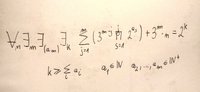 ∀n ∃m ∃(a_m) ∃k ∑_{j=1}^{m} (3^{m-j} ∏_{s=1}^{j} 2^{a_s}) + 3^m · n = 2^k
k ≥ ∑ a_i a_1 ∈ ℕ a_2, ..., a_m ∈ ℕ⁺